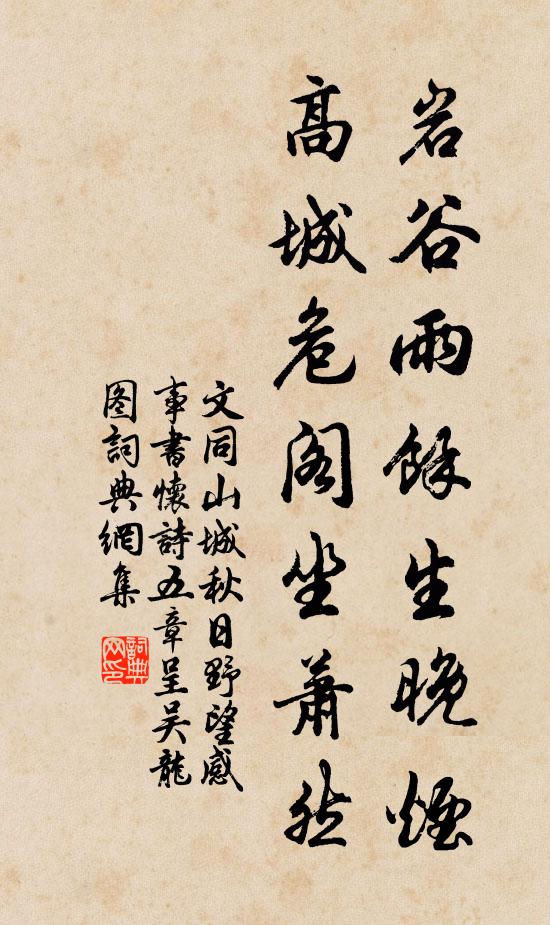 岩谷雨餘生晚煙
高城危阁坐蕭然
文同山城秋日野望感
事書懷詩五章呈吴龍
图詞典網集
詞典
网印